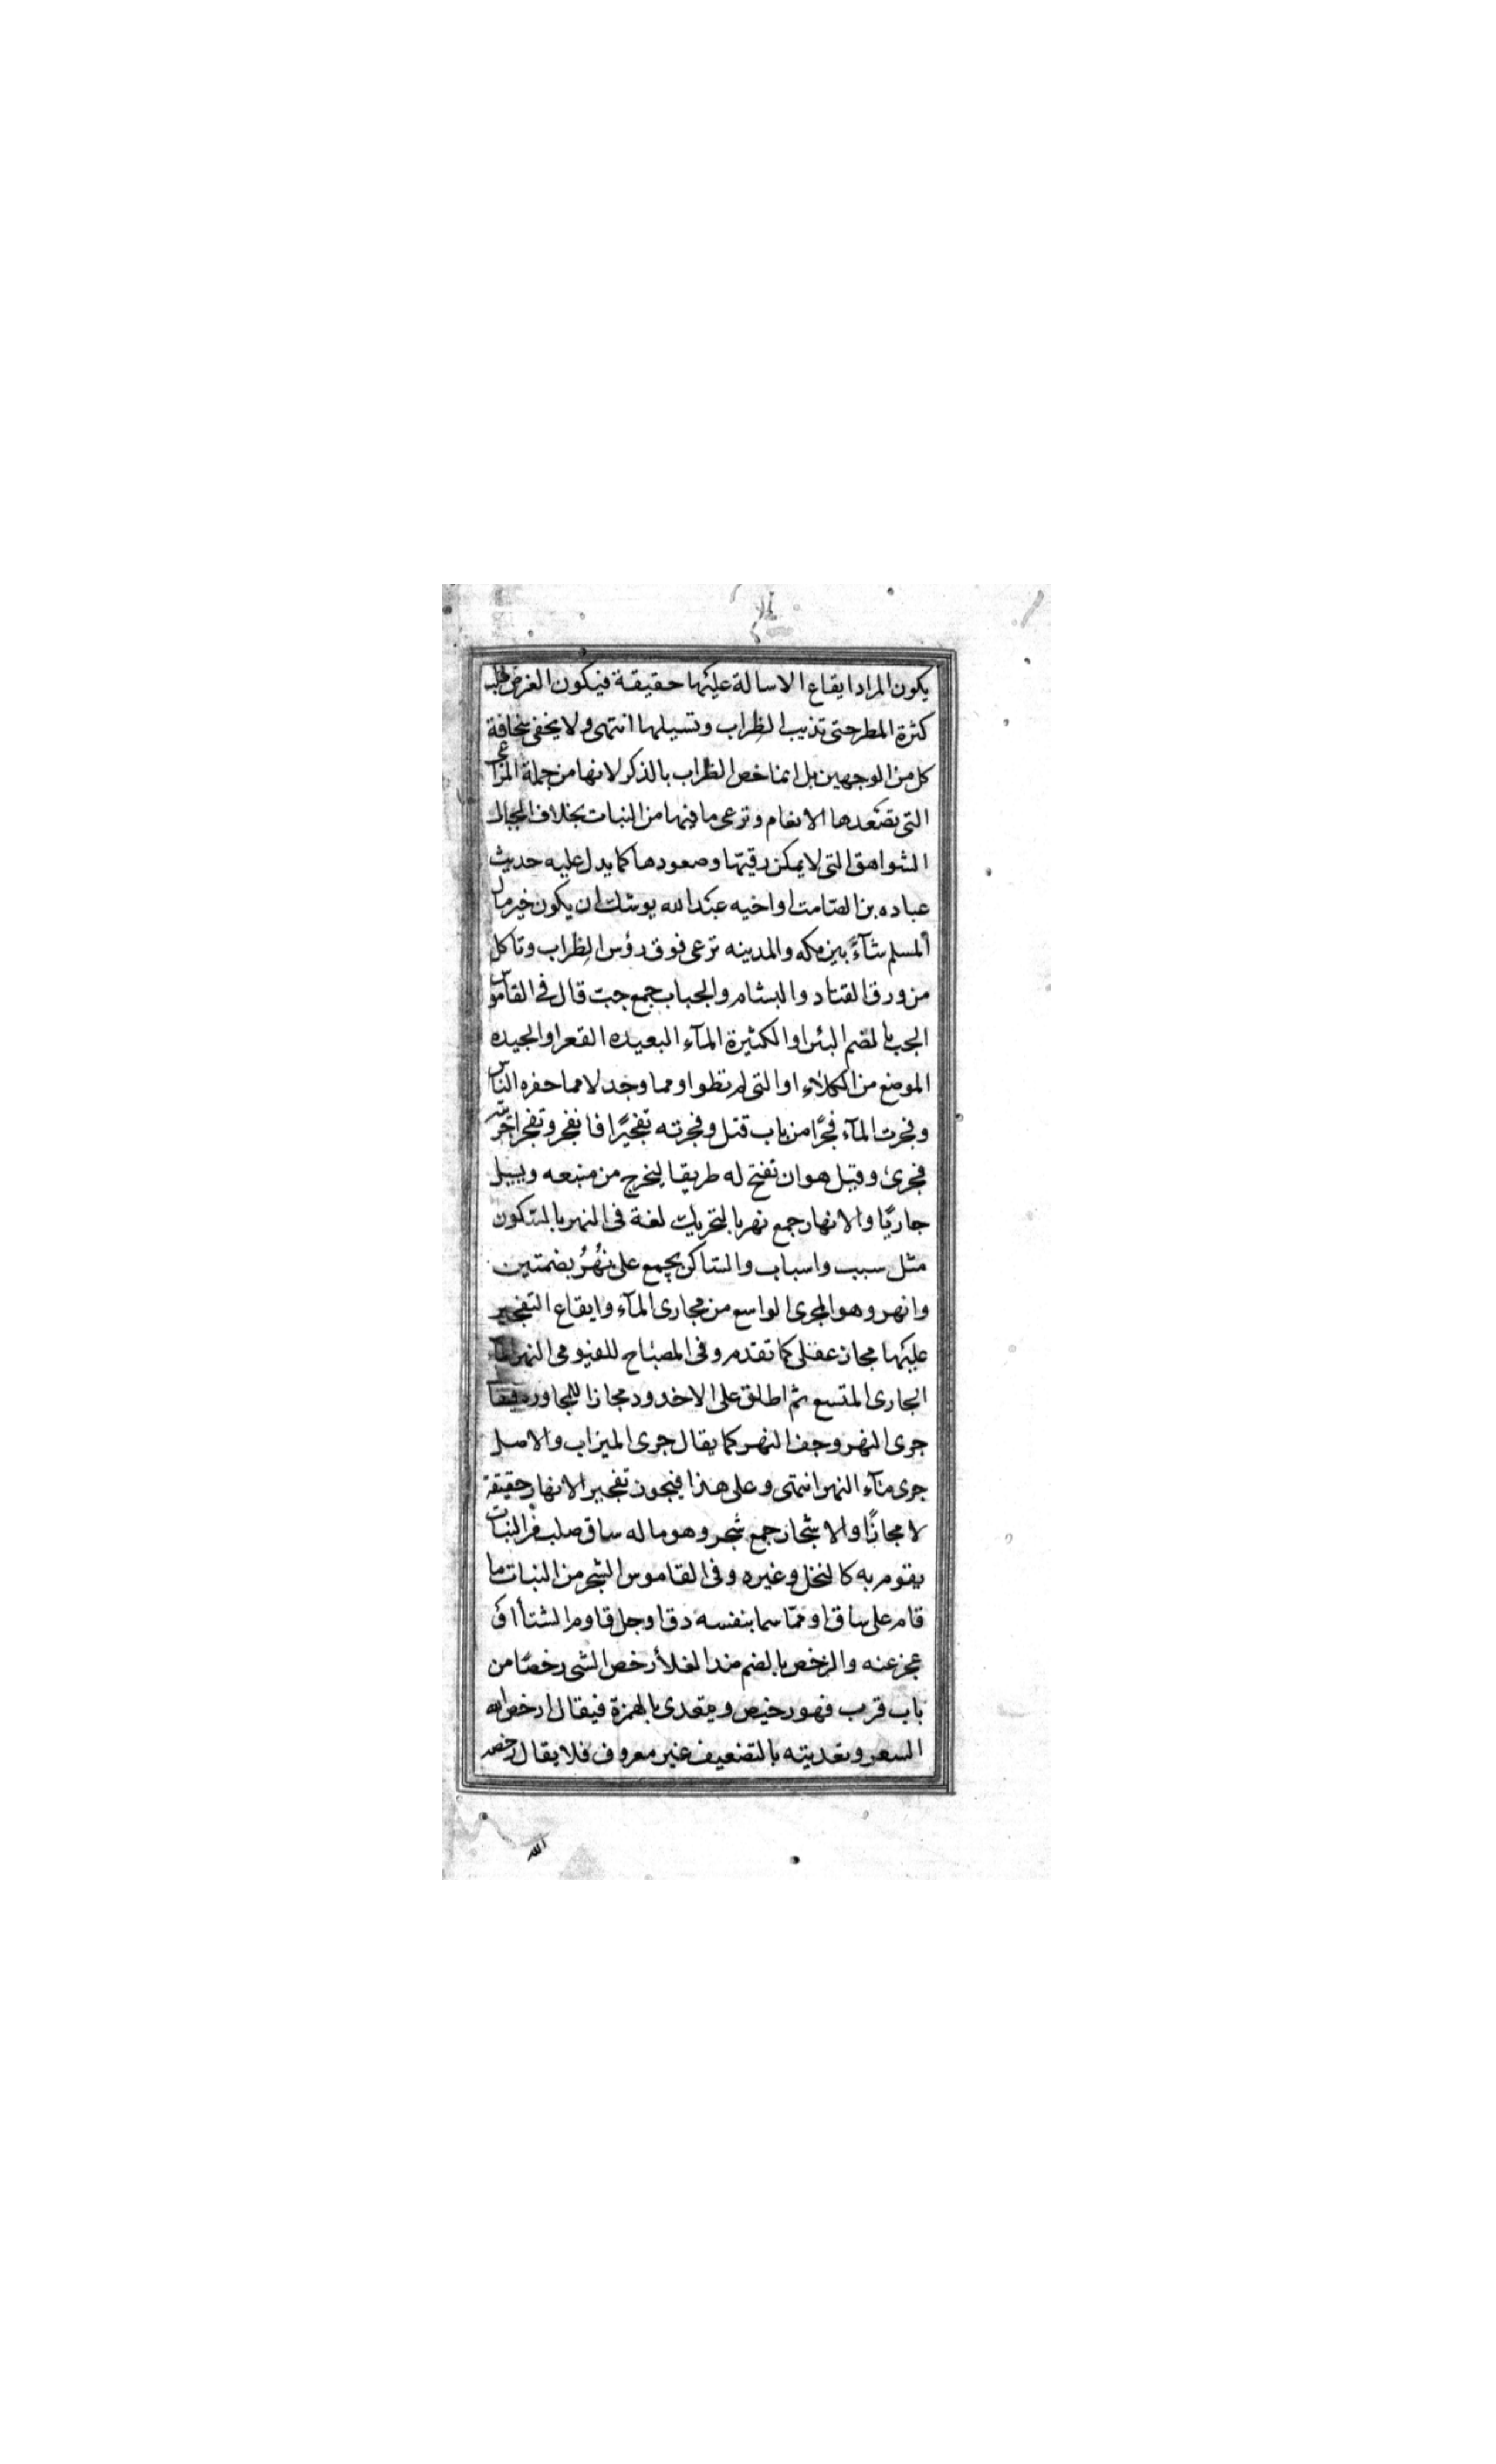 يكون المراد ايقاع الاسالة عليها حقيقة فيكون الغرض طلب
كثرة المطر حتى تذيب الظِراب وتسيلها انتهى ولا يخفى سخافة
كل من الوجهين بل انما خص الظراب بالذكر لانها من جملة المراعى
التى تصعدها الانعام وترعى ما فيها من النبات بخلاف الجبال
الشواهق التى لا يمكن رقيتها وصعودها كما يدل عليه حديث
عباده بن الصامت او اخيه عبد الله يوشك ان يكون خير مال
المسلم شآءً بين مكه والمدينه ترعى فوق رؤس الظِراب وتاكل
من ورق القتاد والبشام والجباب جمع جب قال فى القاموس
الجب بالضم البئر او الكثيرة المآء البعيده القعر او الجيده
الموضع من الكلاء او التى لم تطو او مما وجد لا مما حفره الناس
وفجرت المآء فجرًا من باب قتل وفجرته تفجيرًا فانفجر وتفجر اجريته
فجرى وقيل هو ان تفتح له طريقا ليخرج من منبعه ويسيل
جاريًا والانهار جمع نهر بالتحريك لغة فى النهر بالسكون
مثل سبب واسباب والساكن يجمع على نُهُر بضمتين
وانهر وهو المجرى الواسع من مجارى المآء وايقاع التفجير
عليها مجاز عقلى كما تقدم وفى المصباح للفيومى النهر المآء
الجارى المتسع ثم اطلق على الاخدود مجازا للمجاورة فيقال
جرى النهر وجف النهر كما يقال جرى الميزاب والاصل
جرى مآء النهر انتهى وعلى هذا فيجوز تفجير الانهار حقيقة
لا مجازًا والاشجار جمع شجر وهو ما له ساق صلب من النبات
يقوم به كالنخل وغيره وفى القاموس الشجر من النبات ما
قام على ساق او ممّا سما بنفسه دق او جل قاوم الشتأ او
عجز عنه والرخص بالضم ضد الغلأ رخص الشى رخصًا من
باب قرب فهو رخيص ويتعدى بالهمزة فيقال ارخص الله
السعر وتعديته بالتضعيف غير معروف فلا يقال رخصه
الله